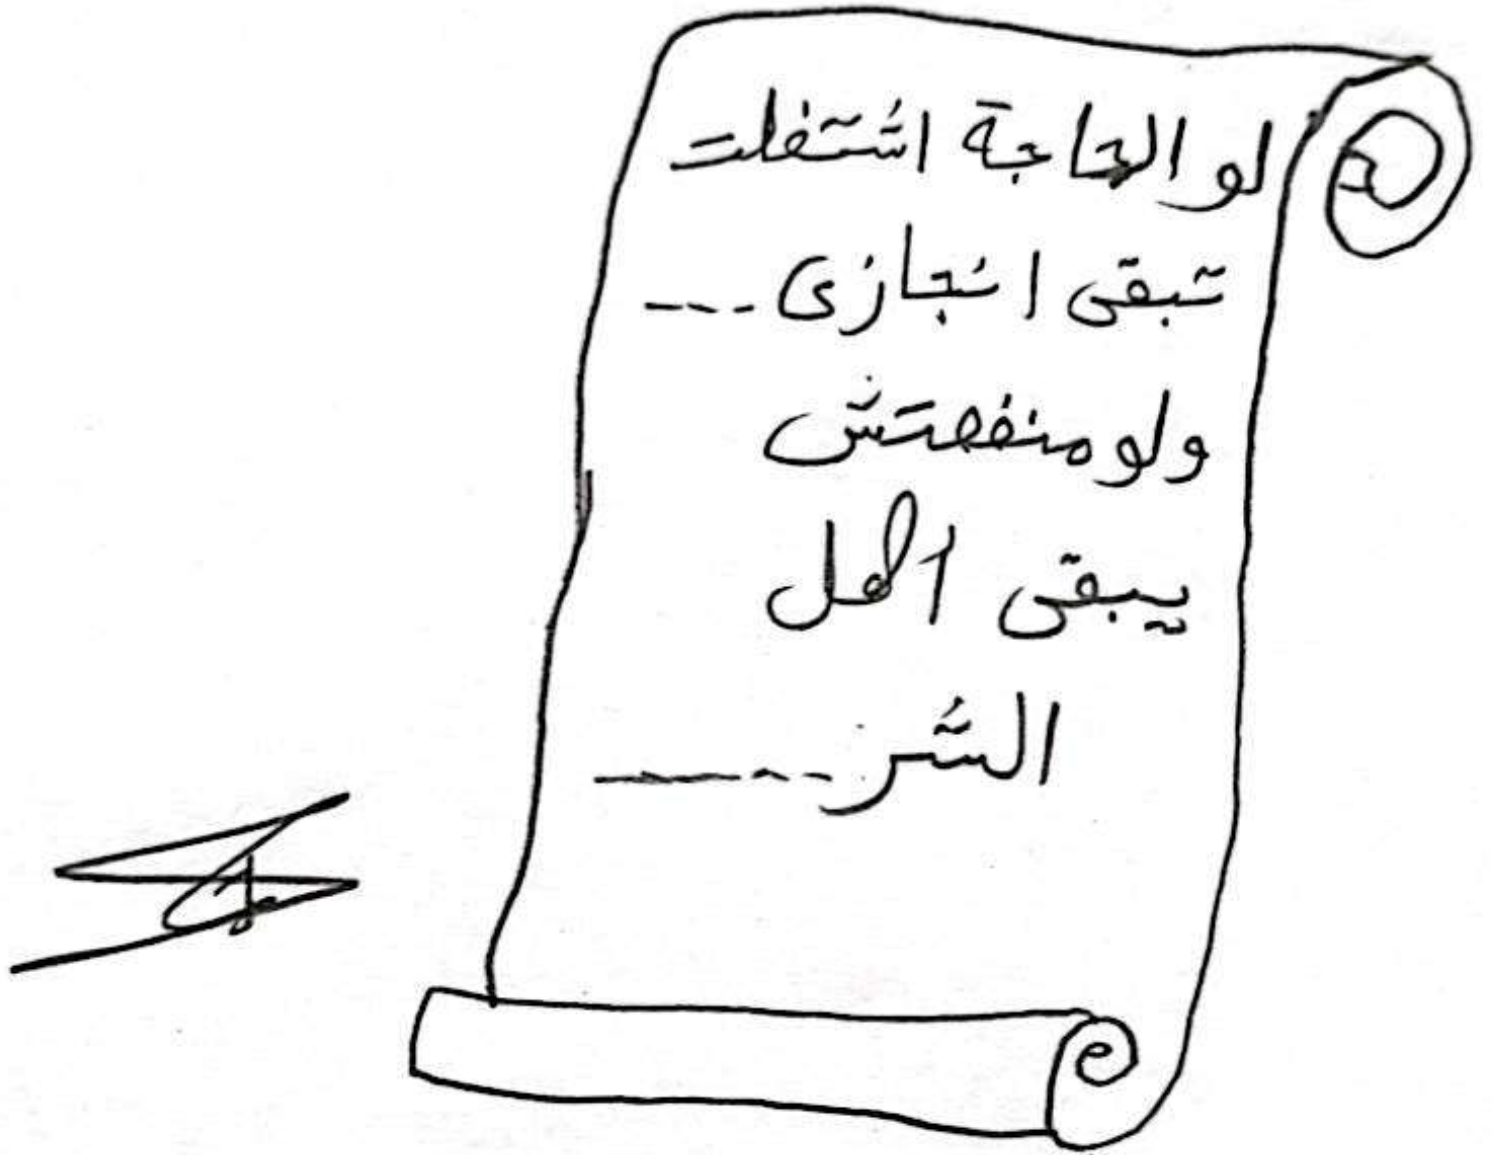 لو الحاجة اشتغلت
تبقى انجازى ---
ولو منفعتش
يبقى اهل
الشر -----